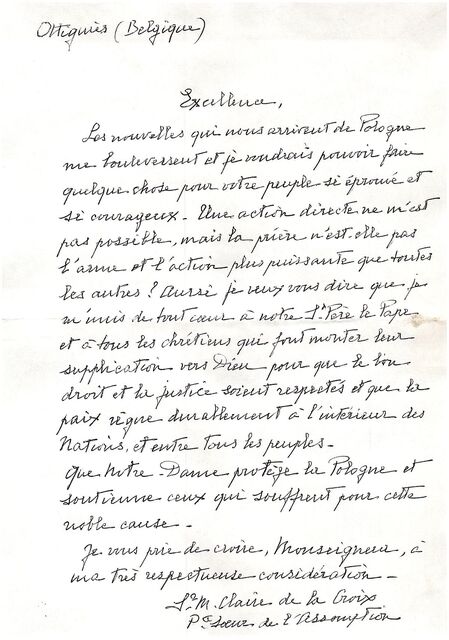 Ottignies (Belgique)
Excellence,
Les nouvelles qui nous arrivent de Pologne
me bouleversent et je voudrais pouvoir faire
quelque chose pour votre peuple si éprouvé et
si courageux - Une action directe ne m'est
pas possible, mais la prière n'est-elle pas
l'arme et l'action plus puissante que toutes
les autres ? Aussi je veux vous dire que je
m'unis de tout cœur à notre St Père le Pape
et à tous les chrétiens qui font monter leur
supplication vers Dieu pour que le bon
droit et la justice soient respectés et que la
paix règne durablement à l'intérieur des
Nations, et entre tous les peuples -
Que Notre-Dame protège la Pologne et
soutienne ceux qui souffrent pour cette
noble cause -
Je vous prie de croire, Monseigneur, à
ma très respectueuse considération -
Sr M. Claire de la Croix
Pte Sœur de l'Assomption